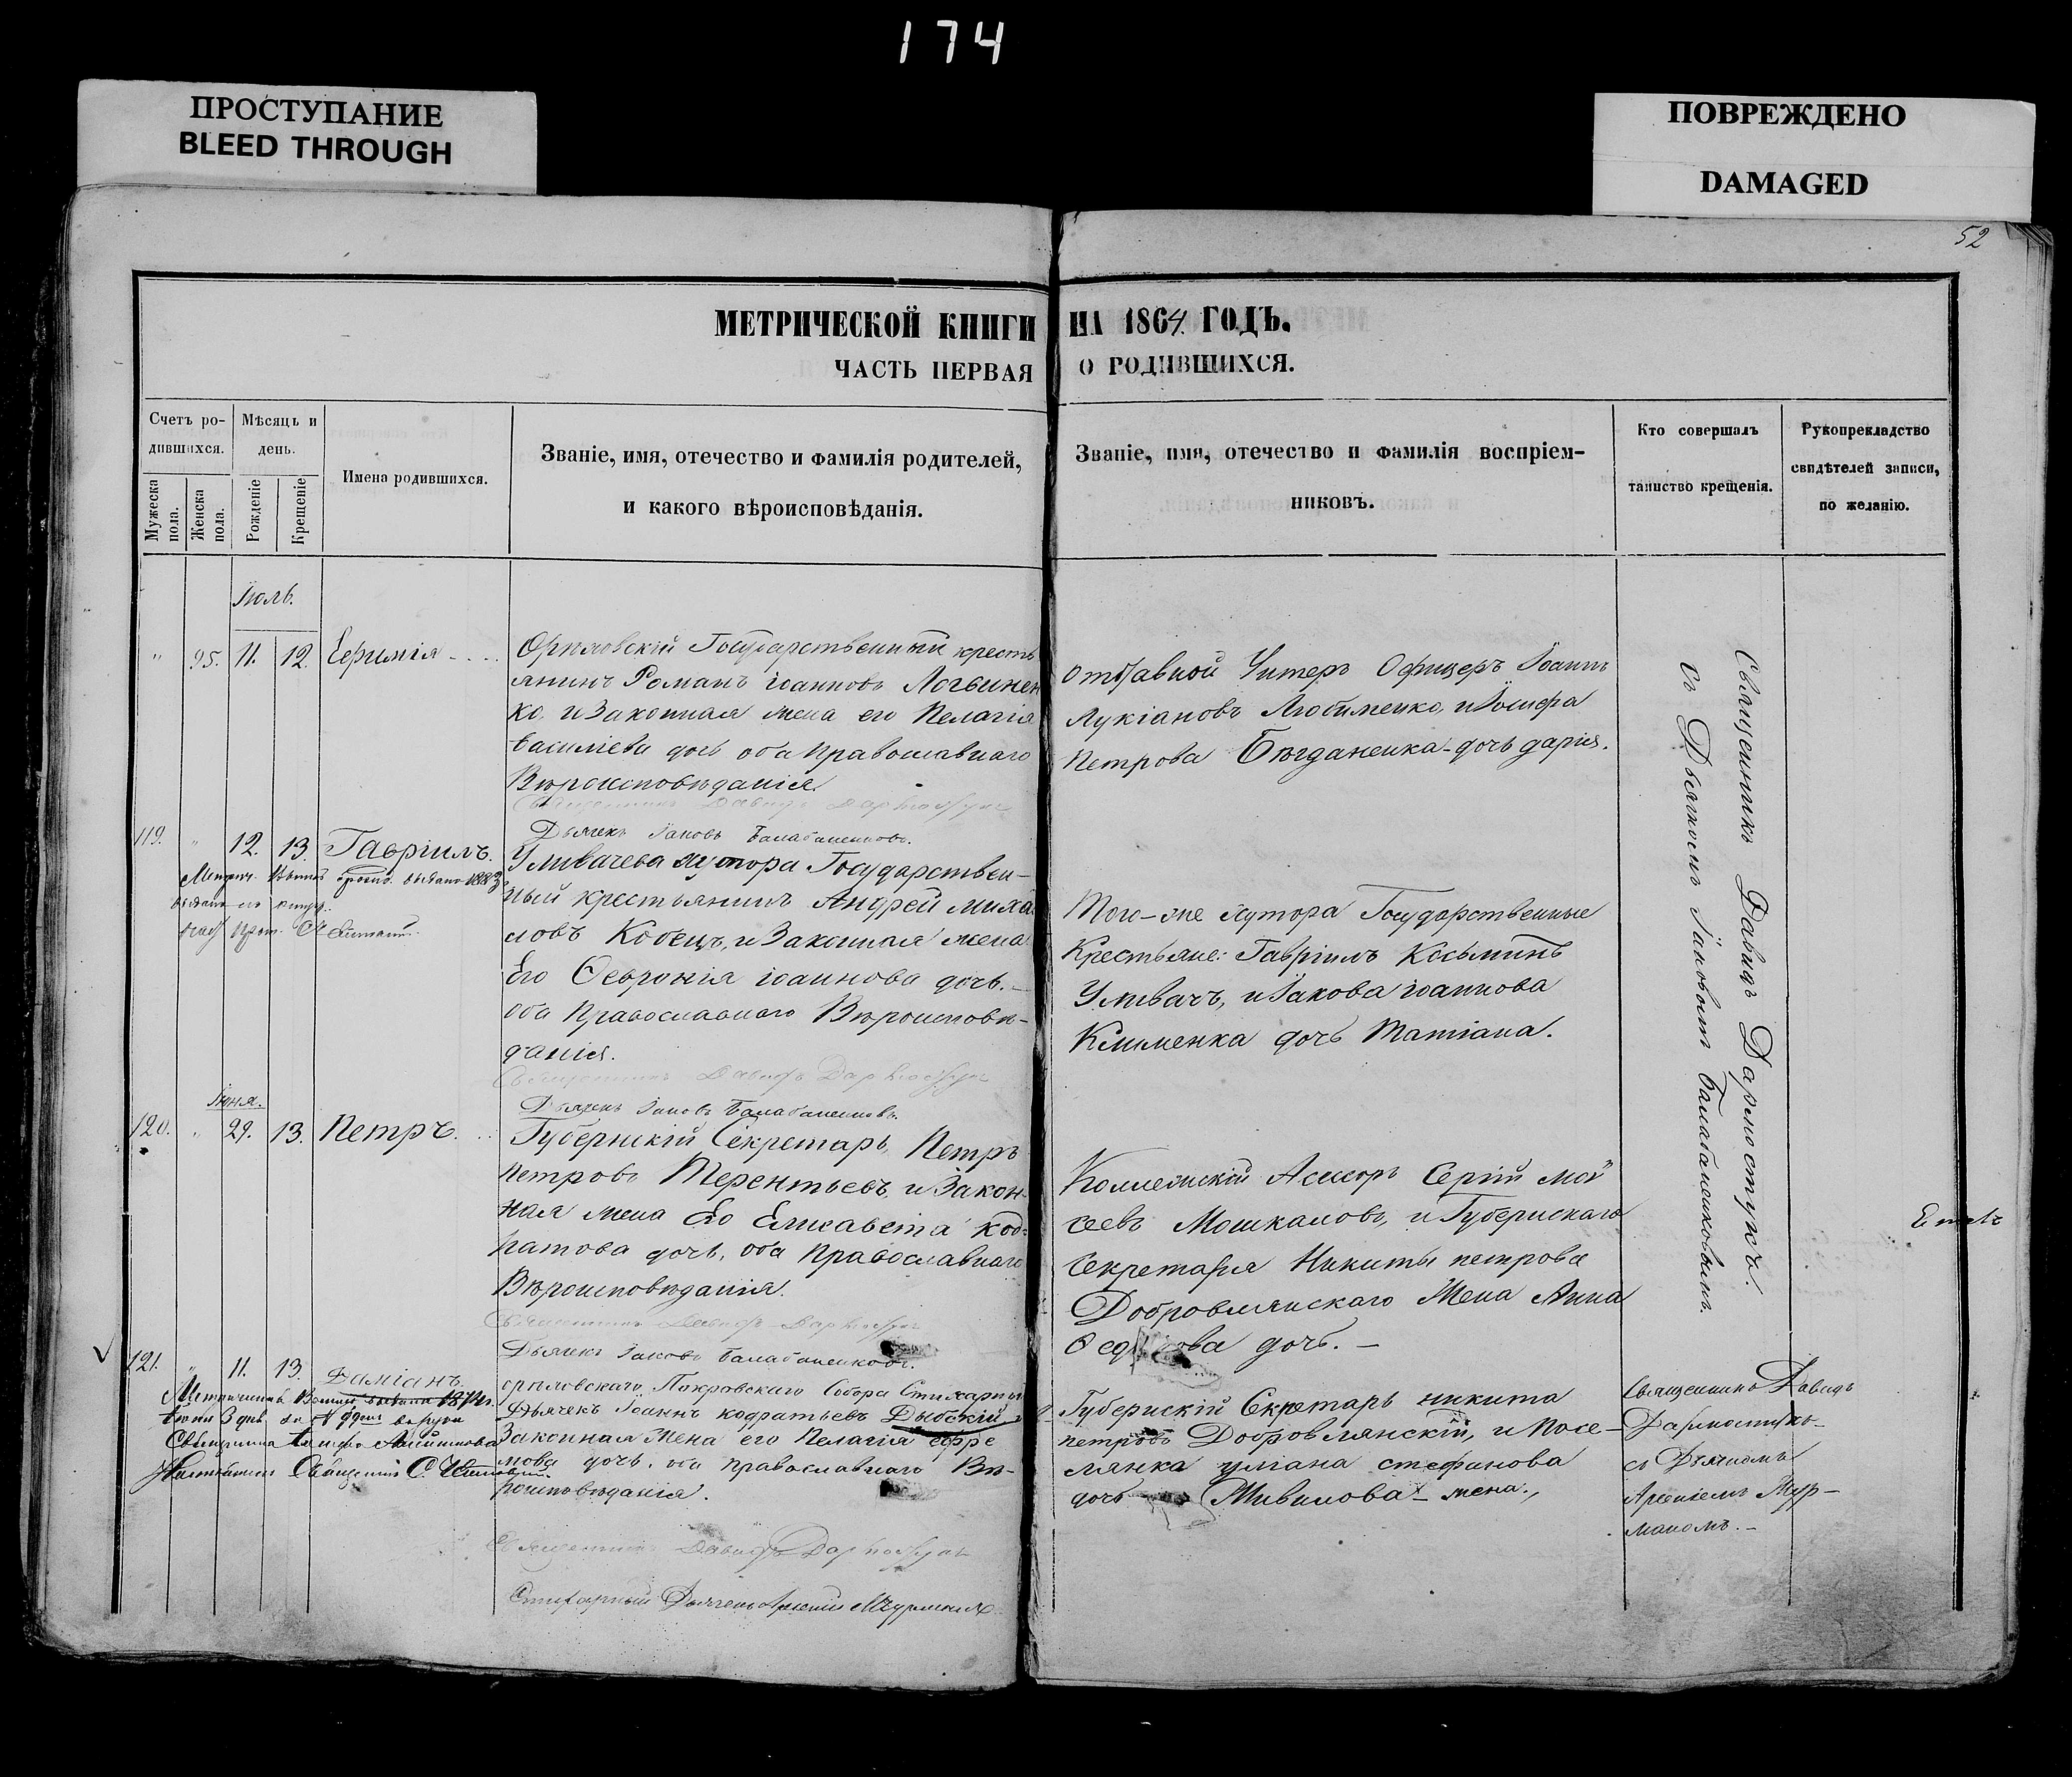 174
ПРОСТУПАНИЕ
BLEED THROUGH
ПОВРЕЖДЕНО
DAMAGED
52
МЕТРИЧЕСКОЙ КНИГИ НА 1864 ГОДЪ.
ЧАСТЬ ПЕРВАЯ О РОДИВШИХСЯ.
Счетъ ро-
дившихся.
Мужеска пола.
Женска пола.
Мѣсяцъ и
день.
Рожденіе
Крещеніе
Имена родившихся.
Званіе, имя, отечество и фамилія родителей,
и какого вѣроисповѣданія.
Званіе, имя, отечество и фамилія воспріем-
никовъ.
Кто совершалъ
таинство крещенія.
Рукоприкладство
свидѣтелей записи,
по желанію.
Іюль.
" 95. 11. 12. Ефимія
Государственный кресть
янинъ Романъ іоанновъ Логвинен
ко, и Законная жена его Пелагія
Василіева дочь оба Православнаго
Вѣроисповѣданія.
Священникъ Давидъ Дармостукъ
Дьячекъ Іаковъ Балабаненковъ.
Отставной Унтеръ Офицеръ Іоаннъ
Лукіановъ Любименко, и Іосифа
Петрова Богданенка дочь дарія.
119. " 12. 13. Гавріилъ.
выдано 1883
Уливачева хутора Государствен-
ный крестьянинъ Андрей Миха
ловъ Кобецъ, и Законная жена
Его Ѳевронія іоаннова дочь.
оба Православнаго Вѣроисповѣ-
данія.
Священникъ Давидъ Дармостукъ
Дьячекъ Іаковъ Балабаненковъ.
Того-же хутора Государственные
Крестьяне: Гавріилъ Косьминъ
Уливачъ, и Іакова іоаннова
Клименка дочь Татіана.
Іюня.
120. " 29. 13. Петръ.
Губернскій Секретарь, Петръ
Петровъ Терентьевъ, и Закон-
ная жена Его Елисавета код-
ратова дочь, оба Православнаго
Вѣроисповѣданія.
Священникъ Давидъ Дармостукъ
Дьячекъ Іаковъ Балабаненковъ.
Коллежскій Асисоръ Сергій Мой
сеевъ Мошкаловъ, и Губернскаго
Секретаря Никиты петрова
Добровлянскаго Жена Анна
дочь.
Священникъ Давидъ Дармостукъ.
съ Дьячкомъ Іаковомъ Балабаненковымъ.
121. " 11. 13. Даміанъ.
Покровскаго Собора Стихарный
Дьячекъ Іоаннъ кодратьевъ Дыбскій
Законная Жена его Пелагія ефре
мова дочь, оба православнаго Вѣ-
роисповѣданія.
Священникъ Давидъ Дармостукъ
Стихарный Дьячекъ
Губернскій Секретарь никита
петровъ Добровлянскій, и посе-
лянка уліана стефанова
дочь Живилова жена.
Священникъ Давидъ
Дармостукъ
съ Дьячкомъ
Арсеніемъ Мур-
маномъ.